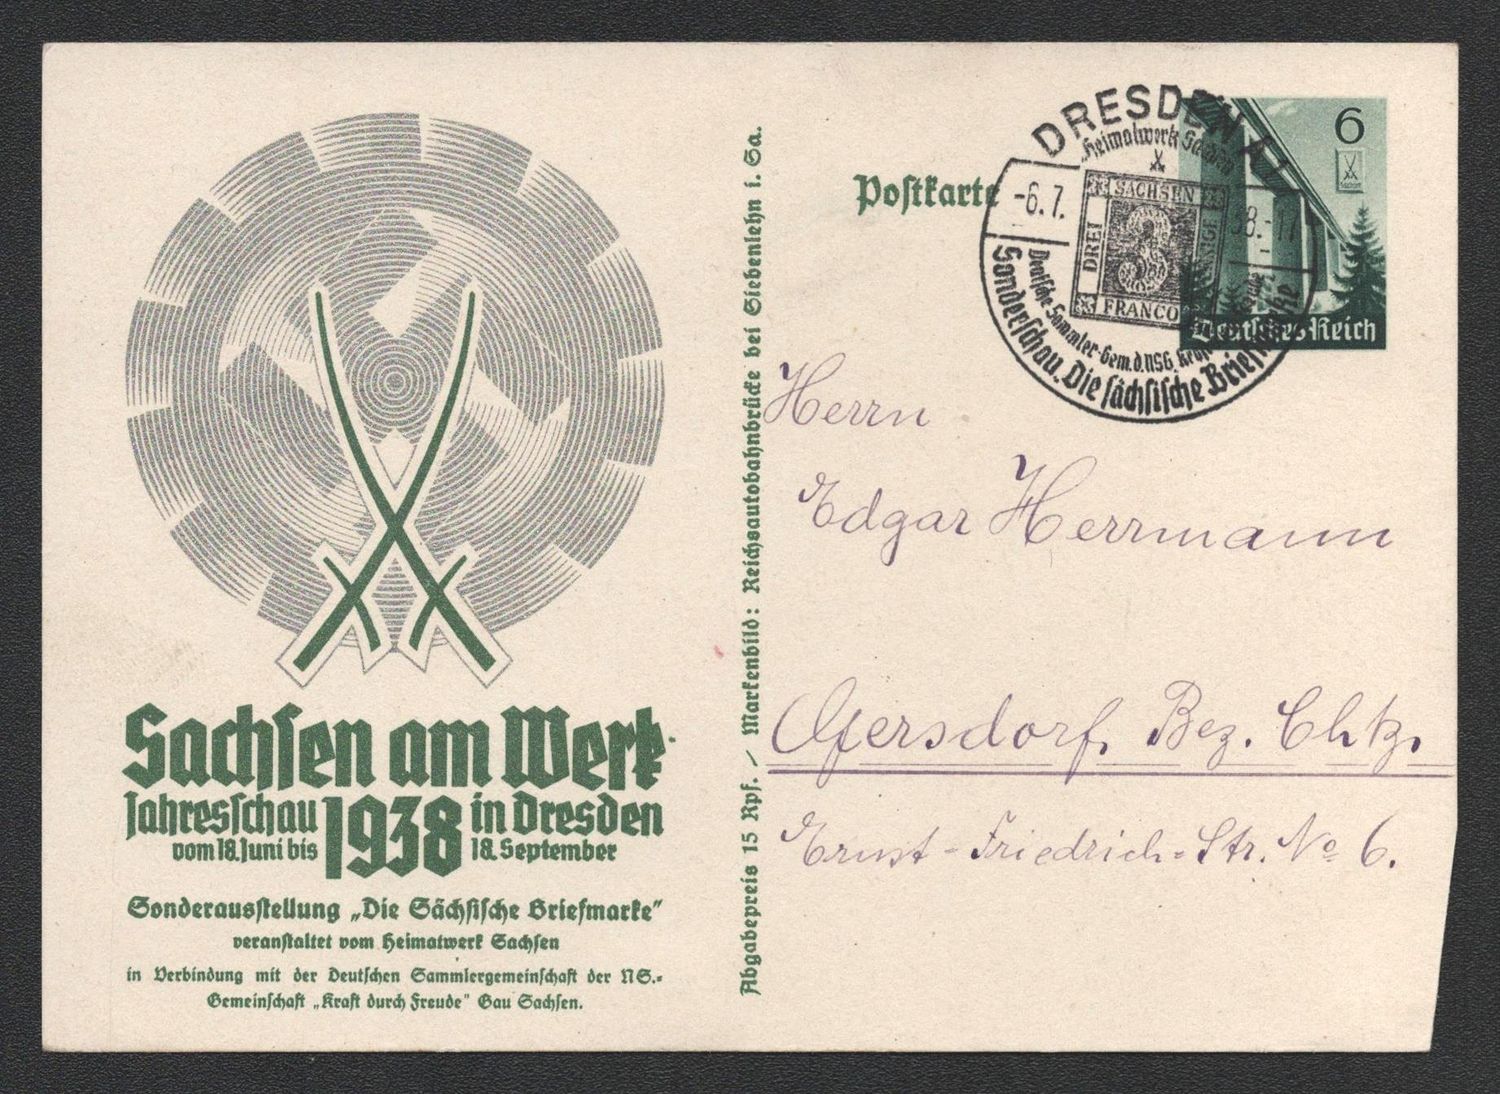 Sachsen am Werk
Jahresschau 1938 in Dresden
vom 18. Juni bis 18. September
Sonderausstellung „Die Sächsische Briefmarke“
veranstaltet vom Heimatwerk Sachsen
in Verbindung mit der Deutschen Sammlergemeinschaft der NS.-
Gemeinschaft „Kraft durch Freude“ Gau Sachsen.
Abgabepreis 15 Rpf. / Markenbild: Reichsautobahnbrücke bei Siebenlehn i. Sa.
Postkarte
6
Deutsches Reich
DRESDEN A
Heimatwerk Sachsen
-6.7.
38.-17
SACHSEN
DREI
3
FRANCO
Deutsche Sammler-Gem. d. NSG. Kraft
Sonderschau. Die sächsische Briefmarke
Herrn
Edgar Herrmann
Bez. Chtz.
Ernst-Friedrich-Str. No 6.